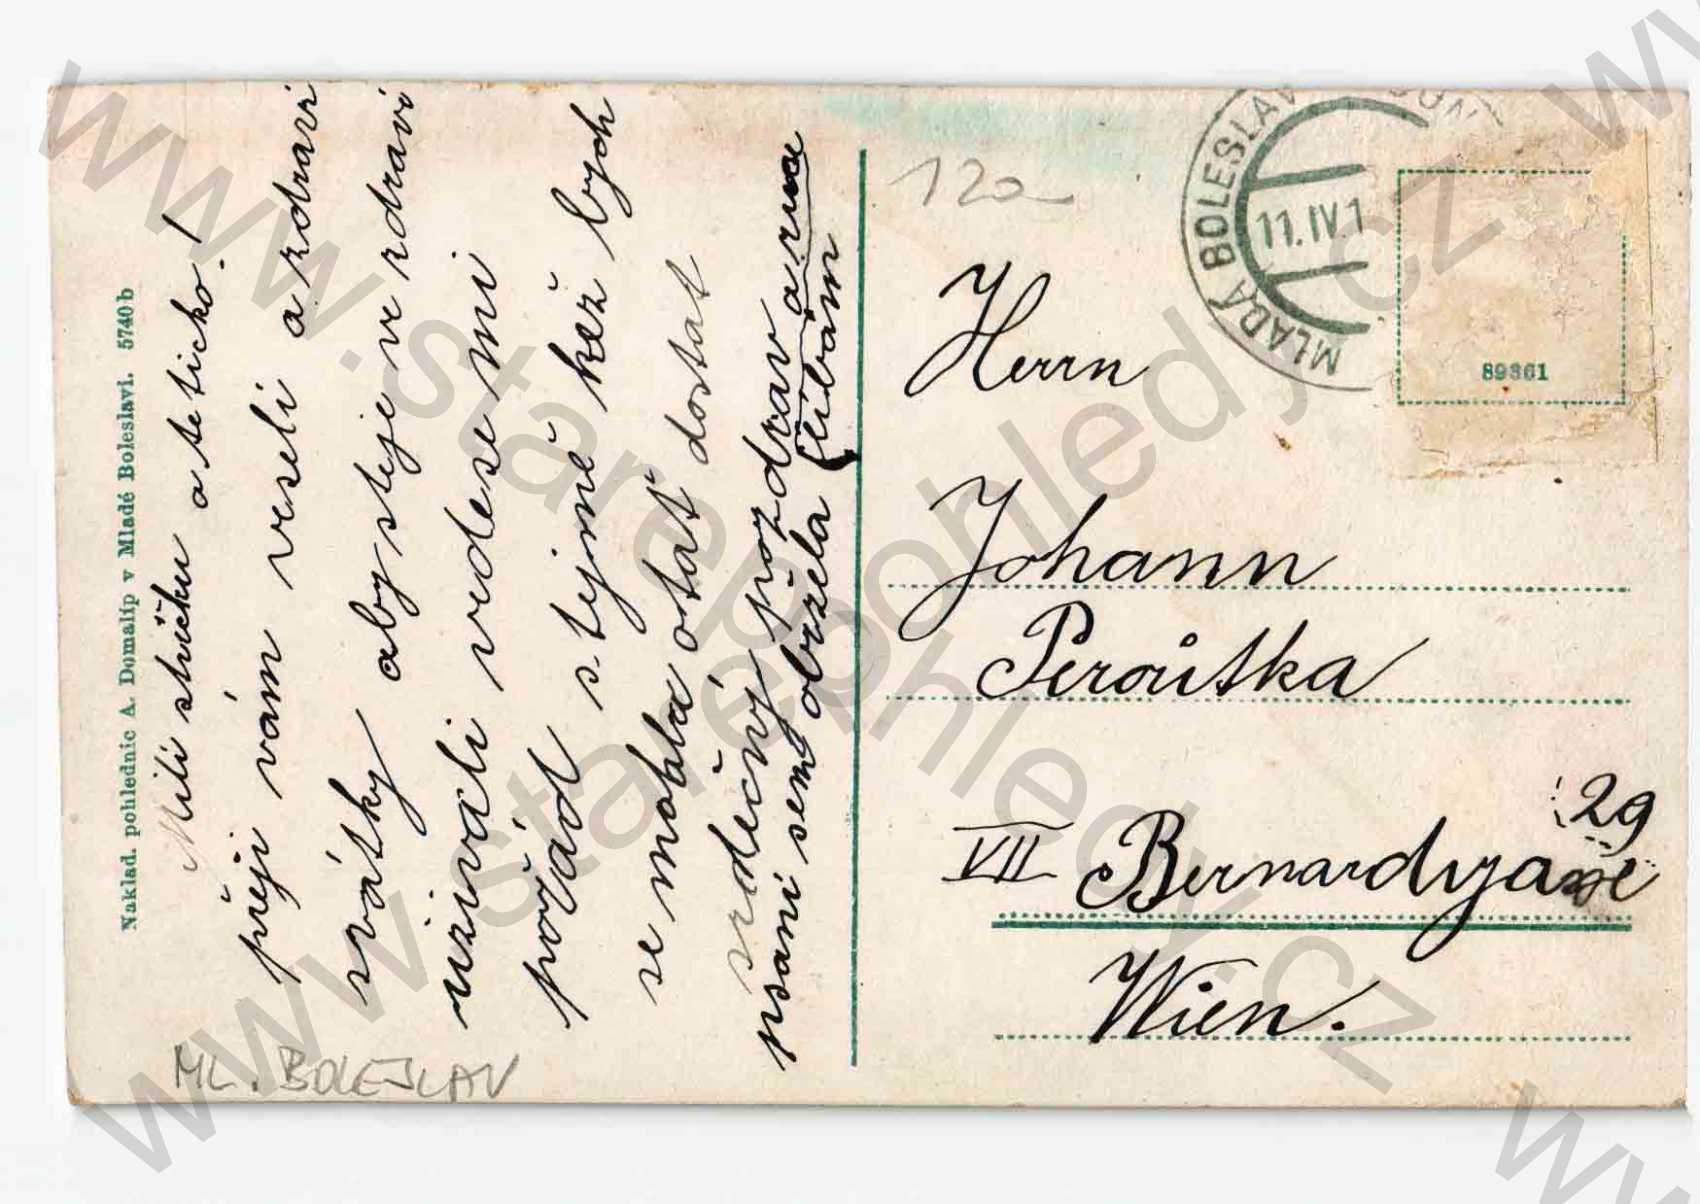 Naklad. pohlednic A. Domalíp v Mladé Boleslavi. 5740b
Milí stričku a teticko!
přeji vám veseli a zdravi
svátky aby steje ve zdravi
užívali vedese mi
pořád stejně kež bych
se mohla ostat dostat
srdečný pozdrav a ruce
psani sem obržela líbám
ML. BOLESLAV
12a
MLADÁ BOLESLAV
11.IV.1
89361
Herrn
Johann
Peroutka
29
VII Bernardga
Wien.
www.starepohledy.cz
www.starepohledy.cz